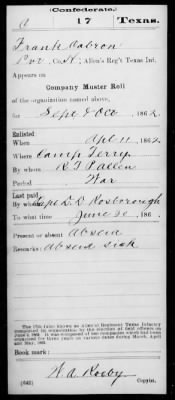 (Confederate.)
C | 17 | Texas.
Frank Cabron
Pvt, Co. K, Allen's Reg't Texas Inf.
Appears on
Company Muster Roll
of the organization named above,
for Sept & Oct, 186 2.
Enlisted
When Apl 11, 186 2.
Where Camp Terry
By whom R T P Allen
Period War
Last paid
By whom Capt D. D. Rosborough
To what time June 30, 186 .
Present or absent Absent
Remarks: absent sick
Book mark:
(642)
Copyist.